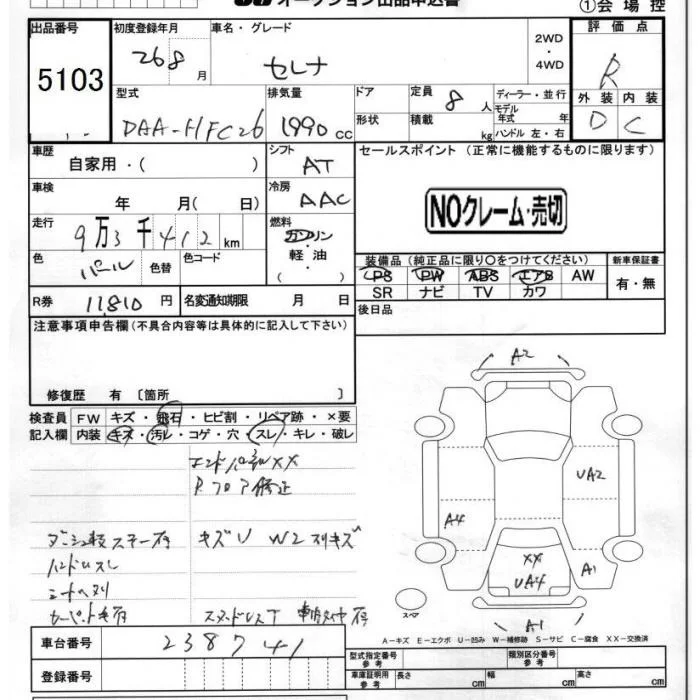 オークション出品申込書
①会場控
出品番号
5103
初度登録年月
26 8 月
車名・グレード
セレナ
2WD
・
4WD
評価点
R
外装 内装
D C
型式
DAA-HFC26
排気量
1990 cc
ドア
形状
定員 8 人
積載 kg
ディーラー・並行
モデル年式 年
ハンドル 左・右
車歴
自家用・( )
シフト
AT
セールスポイント (正常に機能するものに限ります)
NOクレーム・売切
車検
年 月( 日)
冷房
AAC
走行
9万3千412km
燃料
ガソリン
・
軽油
・
( )
色
パール
色替
色コード
装備品 (純正品に限り○をつけてください)
新車保証書
PS PW ABS エアB AW
SR ナビ TV カワ
有・無
R券 11,810 円
名変通知期限 月 日
後日品
注意事項申告欄(不具合内容等は具体的に記入して下さい)
修復歴 有 〔箇所 〕
検査員記入欄
FW キズ・飛石・ヒビ割・リペア跡・×要
内装 キズ・汚レ・コゲ・穴・スレ・キレ・破レ
エンドパネルXX
Rフロア修正
キズU W2 スリキズ
A2
UA2
A4
XX
UA4
A1
A1
スペア
A-キズ E-エクボ U-凹み W-補修跡 S-サビ C-腐食 XX-交換済
車台番号
238741
登録番号
型式指定番号
参考
類別区分番号
参考
車庫証明用
参考
長さ cm
幅 cm
高さ cm